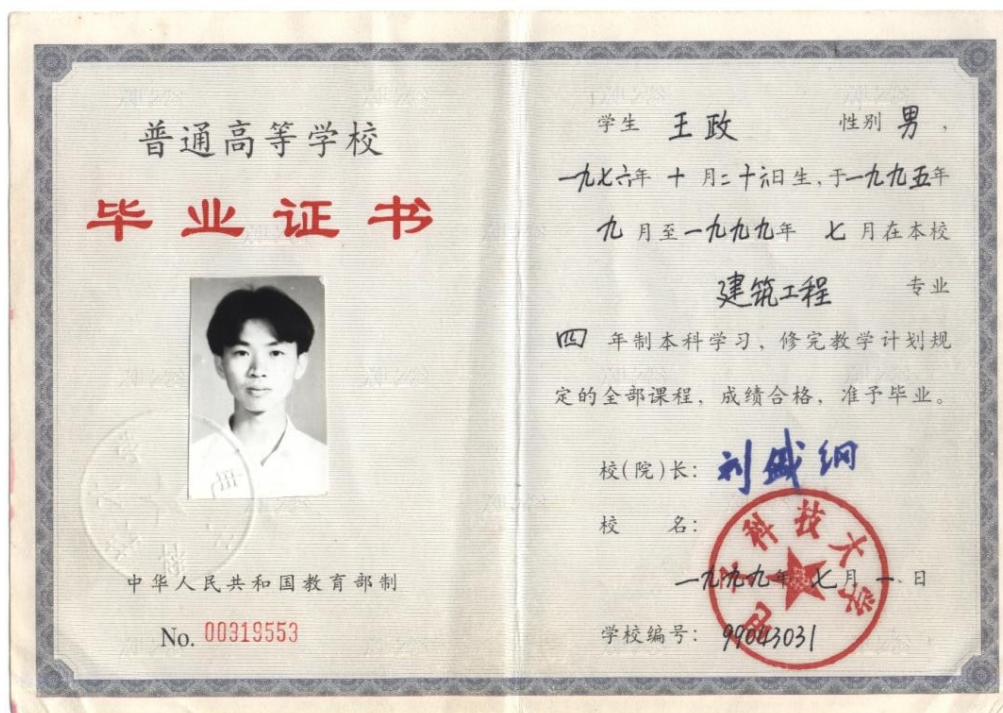 普通高等学校
毕业证书
中华人民共和国教育部制
No. 00319553
学生 王政 性别 男，
一九七六年 十 月二十六日生，于一九九五年
九 月至一九九九年 七 月在本校
建筑工程 专业
四 年制本科学习，修完教学计划规
定的全部课程，成绩合格，准予毕业。
校(院)长：
校 名：
科技大学
一九九九年 七月 一 日
学校编号：99043031